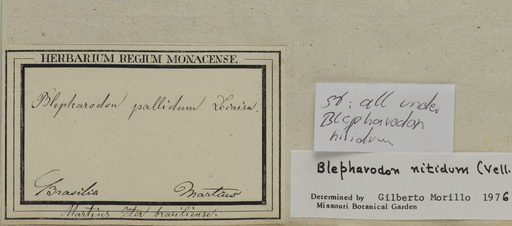 HERBARIUM REGIUM MONACENSE.
Blepharodon pallidum Decaisn.
Brasilia Martius
Martius Iter brasiliense.
st: all under
Blepharodon
nitidum
Blepharodon nitidum (Vell.
Determined by Gilberto Morillo 1976
Missouri Botanical Garden